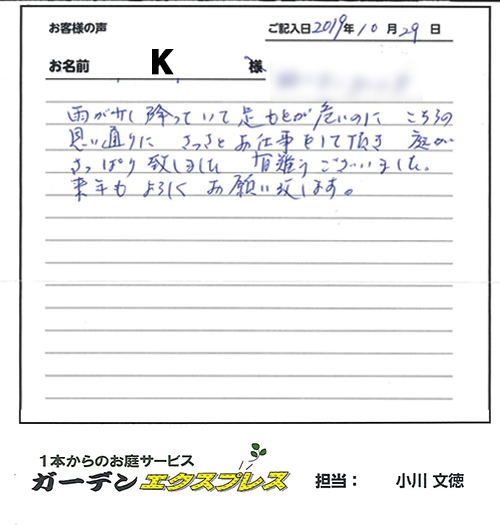 お客様の声 ご記入日2019年10月29日
お名前 K 様
雨が少し降っていて足もとが危いのに こちらの
思い通りに さっさとお仕事をして頂き 庭が
さっぱり致しました 有難うございいました。
来年も よろしく お願い致します。
1本からのお庭サービス
ガーデンエクスプレス 担当: 小川 文徳